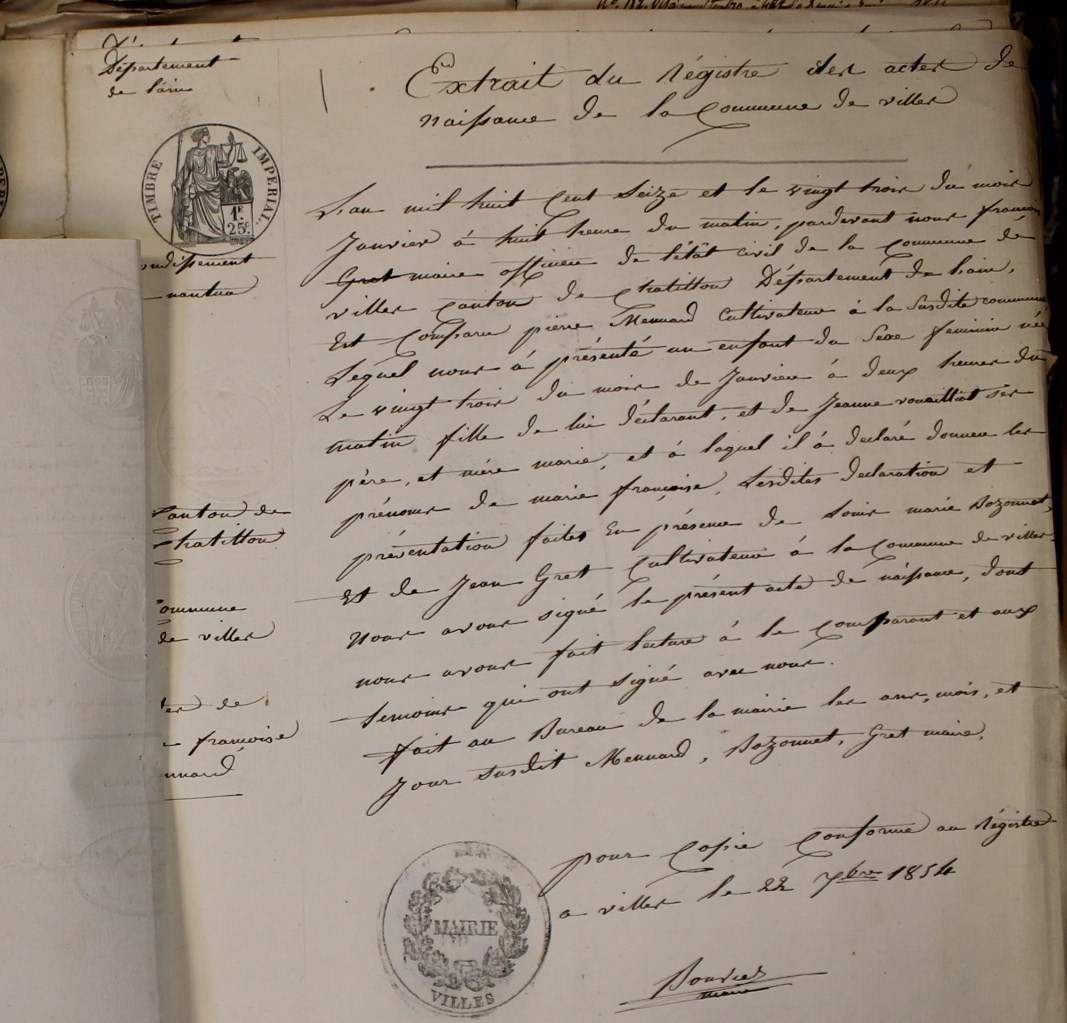 Département
de l'ain
TIMBRE IMPERIAL.
1F.
25c.
ondissement
nantua
canton de
chatillon
commune
de villes
de
françoise
nnard
Extrait du Régistre des actes de
naissance de la Commune de villes
L'an mil huit Cent Seize et le vingt trois du mois
Janvier à huit heure du matin, pardevant nous françois
Gret maire officier de l'état civil de la Commune de
villes canton de chatillon Département de l'ain,
Est Comparu pierre Mennard Cultivateur à la Susdite commune
Lequel nous à présenté un enfant du Sexe feminin née
Le vingt trois du mois de Janvier à deux heures du
matin fille de lui déclarant, et de Jeanne vouilliat ses
père, et mère marie, et à laquel il à déclaré donner les
prénoms de marie françoise, Lesdites declaration et
présentation faites En présence de Louis marie Bozonnet,
Et de Jean Gret Cultivateur à la Commune de villes
nous avons signé le présent acte de naissance, dont
nous avons fait lecture à le comparant et aux
temoins qui ont signé avec nous.
fait au Bureau de la mairie les ans, mois, et
Jour susdit Mennard, Bozonnet, Gret maire.
pour Copie Conforme au Régistre
a villes le 22 7bre 1854
MAIRIE
VILLES
Bouvier
maire